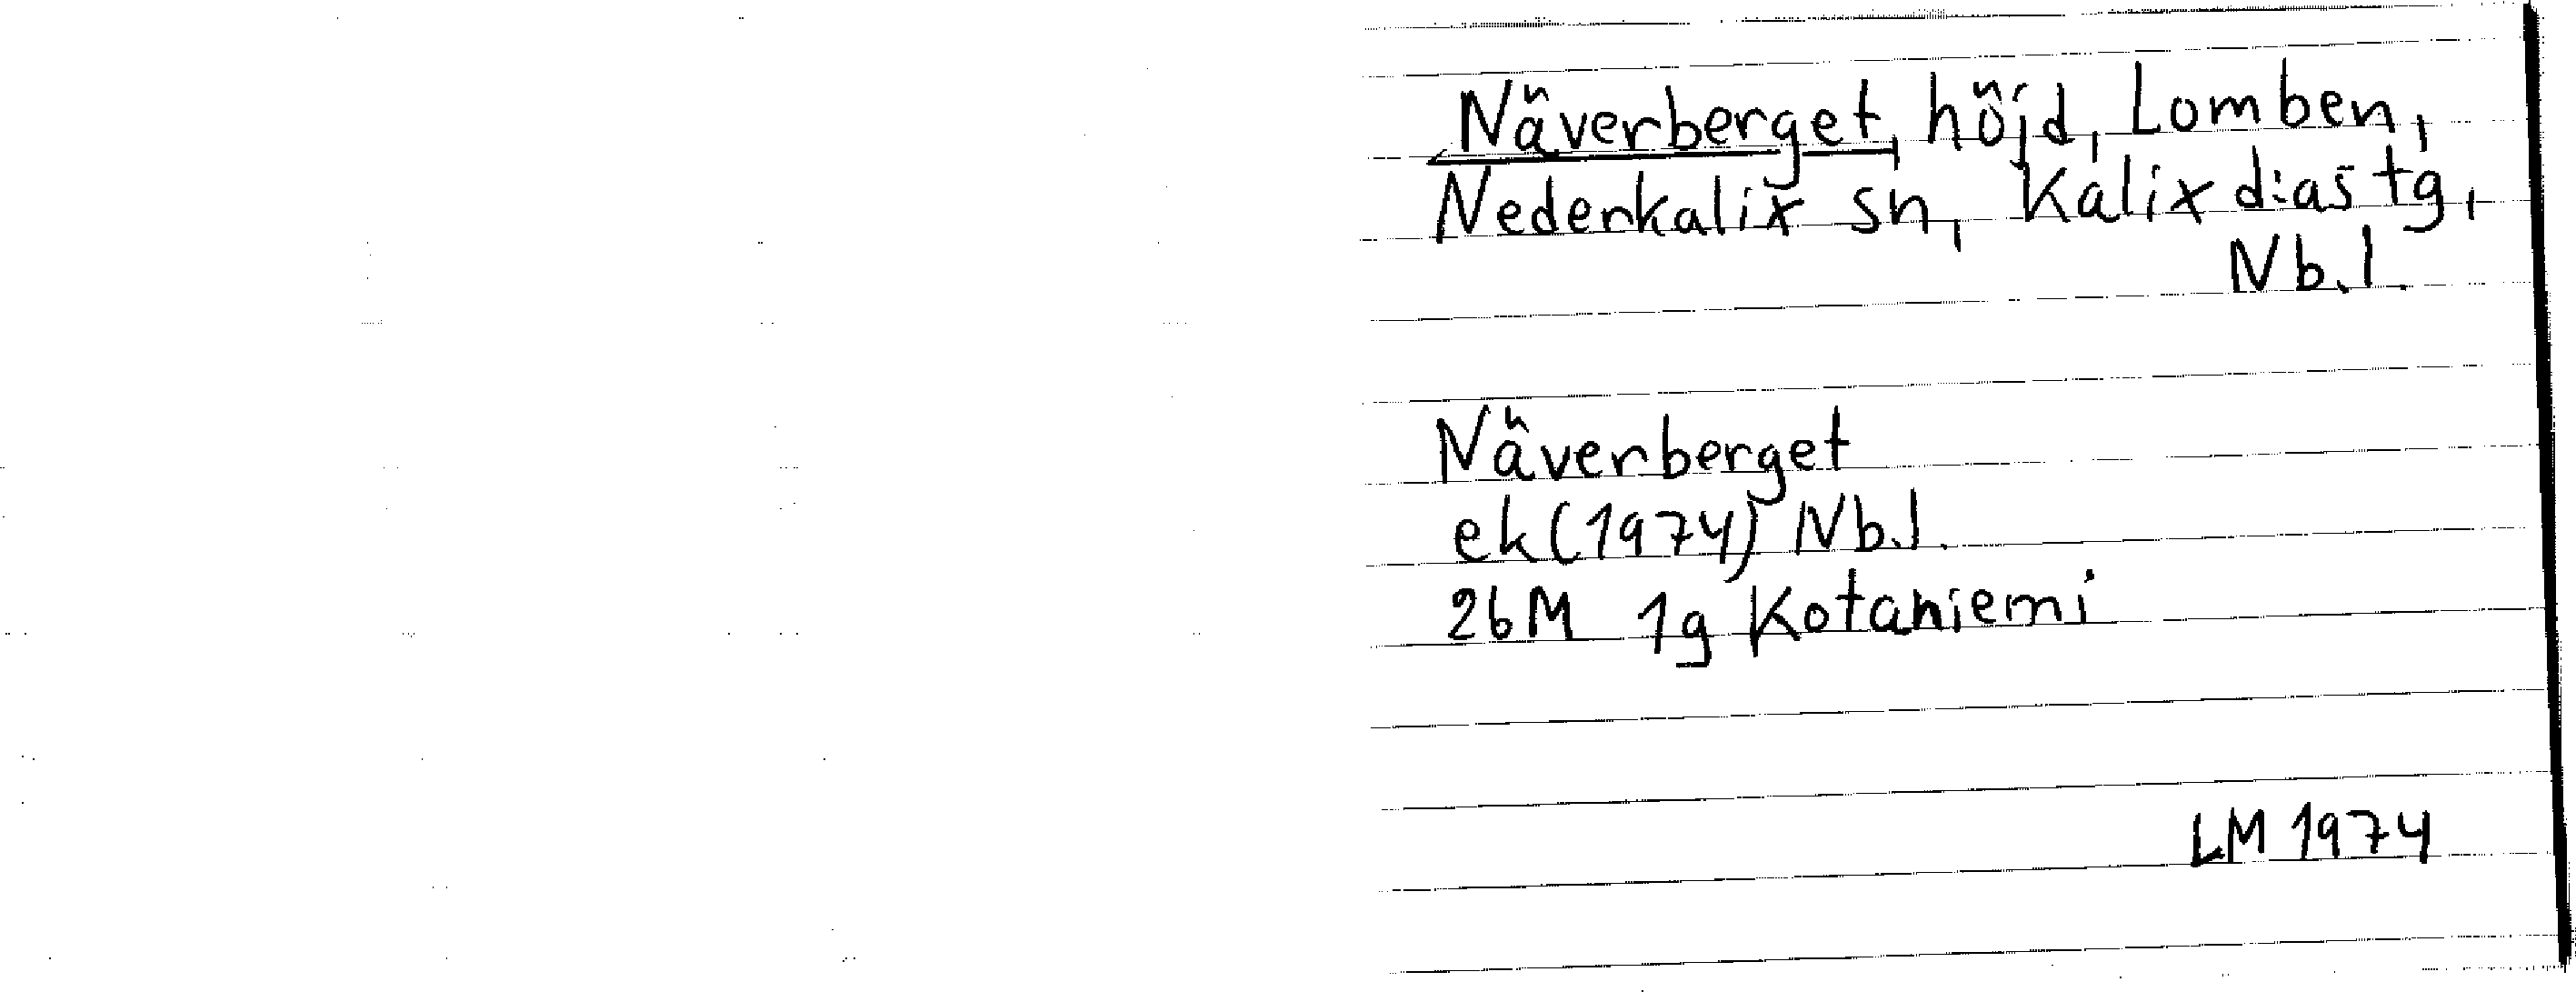 Näverberget, höjd, Lomben,
Nederkalix sn, Kalix d:as tg,
Nb.l.
Näverberget
ek (1974) Nb.l.
26M 1g Kotaniemi
LM 1974